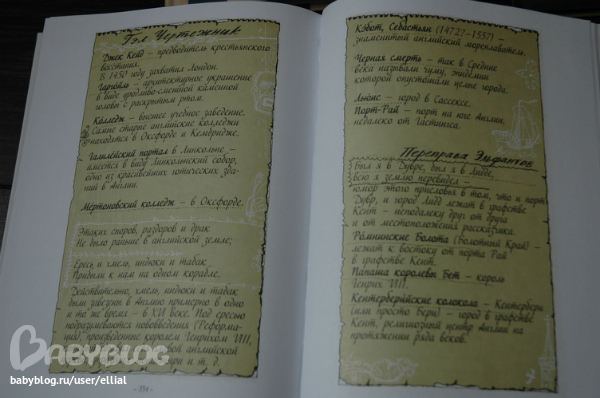 Гэл Чертежник
Джек Кейд – предводитель крестьянского
восстания.
В 1450 году захватил Лондон.
Гаргойл – архитектурное украшение
в виде уродливо-смешной каменной
головы с раскрытым ртом.
Колледж – высшее учебное заведение.
Самые старые английские колледжи
находятся в Оксфорде и Кембридже.
портал в Линкольне –
имеется в виду Линкольнский собор,
одно из красивейших готических зда-
ний в Англии.
Мертоновский колледж – в Оксфорде.
Этаких споров, раздоров и драк
Не было раньше в английской земле;
Ересь и хмель, индюки и табак
Прибыли к нам на одном корабле.
Действительно, хмель, индюки и табак
были завезены в Англию примерно в одно
и то же время – в XVI веке. Под ересью
подразумеваются нововведения (Реформа-
ция), произведенные королем Генрихом VIII,
вой английской
и т. д.
Кэбот, Себастьян (1472?–1557) –
знаменитый английский мореплаватель.
Черная смерть – так в Средние
века называли чуму, эпидемии
которой опустошали целые города.
Льюис – город в Сассексе.
Порт-Рай – порт на юге Англии,
недалеко от Гастингса.
Переправа Эльфантов
Был я в Дувре, был я в Лидде,
всю я землю перевидел –
юмор этого присловья в том, что и порт
Дувр, и город Лидд лежат в графстве
Кент – неподалеку друг от друга
и от местоположения рассказчика.
Ромнинские Болота (Болотный Край) –
лежат к востоку от порта Рай
в графстве Кент.
Папаша королевы Бет – король
Генрих VIII.
Кентерберийские колокола – Кентербери
(или просто Бери) – город в графстве
Кент, религиозный центр Англии на
протяжении ряда веков.
BABYBLOG
babyblog.ru/user/ellial